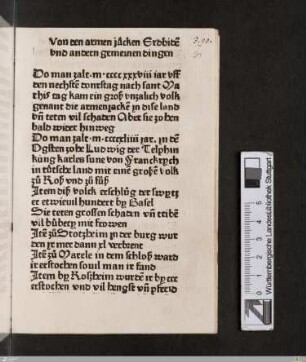 Von den armen jäcken Erdbidē
vnd andern gemeinen dingen
Do man zalt·m·cccc xxxviii iar vff
den nechste donrstag nach sant Ma
this tag kam ein groß vnzalich volk
genant die armenjackē in dise land
vn̄ teten vil schaden Aber sie zohen
bald wider hinweg
Do man zalt·m·ccccxliiii jar. jn dē
Ogsten zohe Ludwig der Telphin
küng karlen sune von Franckrych
in tütsche land mit eine großē volk
zů Roß vnd zů fůß
Item diß volck erschlůg der swytz
er etwieuil hundert by Basel
Sie teten grossen schaden vn̄ tribē
vil bůbery mit frowen
Item zů Stotzheim jn der burg wur
den jr mer dann xl verbrent
Item zů Marle in dem schloß ward
ir erstochen souil man ir fand
Item by Roßheim wurdē ir by ccc
erstochen vnd vil hengst vn̄ pferid
Württembergische Landesbibliothek Stuttgart